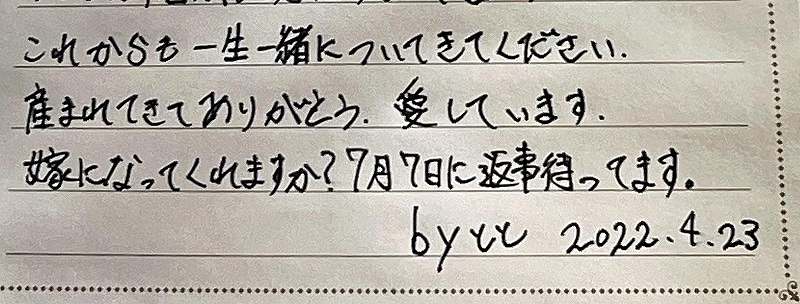 これからも一生一緒についてきてください.
産まれてきてありがとう. 愛しています.
嫁になってくれますか?7月7日に返事待ってます。
by とと 2022.4.23